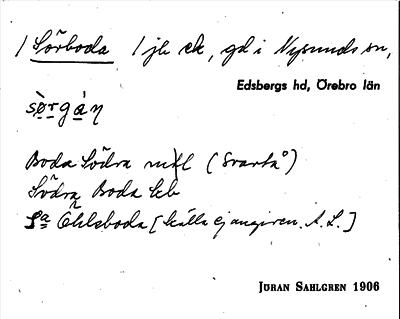 / Sörboda 1 jb ek, gd i Nysunds sn,
Edsbergs hd, Örebro län
sö̀rgán
Boda Södra mtl (Svartå)
Södra Boda Eeb
Sa Ohlsboda [källa ej angiven. A. L.]
JÖRAN SAHLGREN 1906